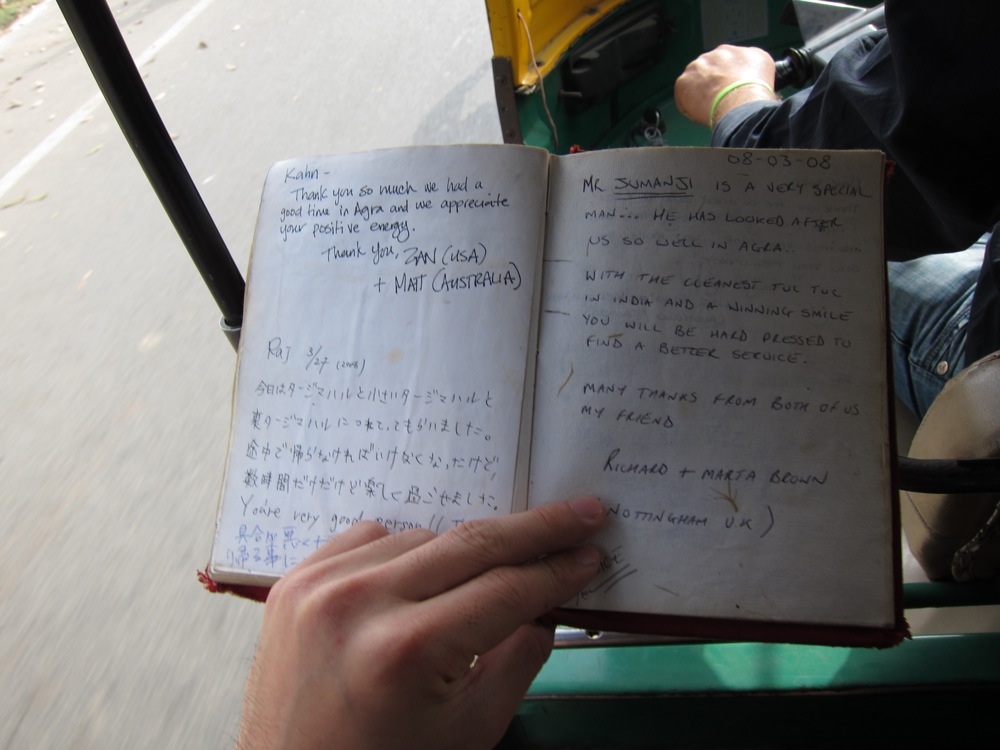 Kahn -
Thank you so much we had a
good time in Agra and we appreciate
your positive energy.
Thank you, ZAN (USA)
+ MATT (AUSTRALIA)
Raj 3/27 (2008)
今日はタージマハルと小さいタージマハルと
裏タージマハルにつれてってもらいました。
途中で帰らなければいけなくなったけど、
数時間だけだけど楽しく過ごせました。
You're very good person!!
具合が悪く
帰る事に
08-03-08
MR SUMANJI IS A VERY SPECIAL
MAN.... HE HAS LOOKED AFTER
US SO WELL IN AGRA..
WITH THE CLEANEST TUC TUC
IN INDIA AND A WINNING SMILE
YOU WILL BE HARD PRESSED TO
FIND A BETTER SERVICE.
MANY THANKS FROM BOTH OF US
MY FRIEND
RICHARD + MARTA BROWN
NOTTINGHAM U.K)